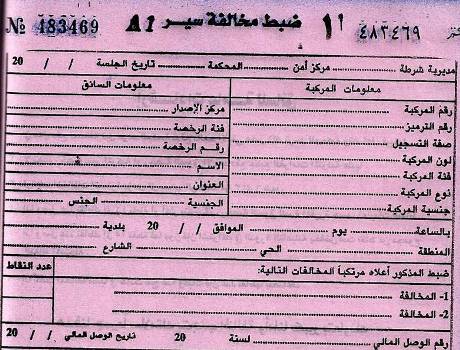 № 483469 A1 ضبط مخالفة سير أ1 ٤٨٣٤٦٩
مديرية شرطة ........ مركز أمن ........ المحكمة ........ تاريخ الجلسة / / 20
معلومات المركبة
رقم المركبة
رقم الترميز
صفة التسجيل
لون المركبة
فئة المركبة
نوع المركبة
جنسية المركبة
معلومات السائق
مركز الإصدار
فئة الرخصة
رقم الرخصة
الاسم
العنوان
الجنسية ........ الجنس
بالساعة ........ يوم ........ الموافق / / 20 بلدية
المنطقة ........ الحي ........ الشارع
ضبط المذكور أعلاه مرتكباً المخالفات التالية:
عدد النقاط
1- المخالفة
2- المخالفة
رقم الوصل المالي ........ لسنة 20 تاريخ الوصل المالي / / 20